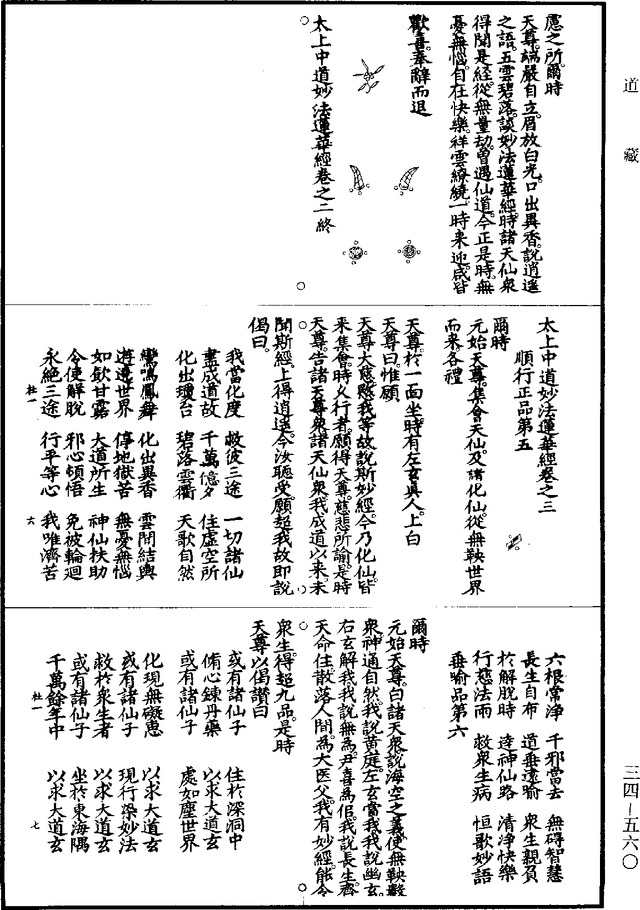 道藏
應之所爾時
天尊端嚴自立眉放白光口出異香說逍遙
之語五雲碧落談妙法蓮華經時諸天仙衆
得聞是經從無量劫曾遇仙道今正是時無
憂無惱自在快樂祥雲繚繞一時来迎咸皆
歡喜奉辭而退
太上中道妙法蓮華經卷之二終
太上中道妙法蓮華經卷之三
順行正品第五
爾時
元始天尊集會天仙及諸化仙從無鞅世界
而来各禮
天尊於一面坐時有左玄真人上白
天尊曰惟願
天尊大慈愍我等故說斯妙經令乃化仙皆
来集會時乂行者願得天尊慈悲所諭是時
天尊告諸天尊衆諸天仙衆我成道以来未
聞斯經上得逍遥今汝聽受願超我故即說
偈曰
我當化度 救彼三途 一切諸仙
盡成道故 千萬億夕 住虛空所
化出瓊台 碧落雲衢 天歌自然
鸞鳴鳳舞 化出異香 雲開結輿
遊邊世界 停地獄苦 無憂無惱
如飲甘露 大道所生 神仙扶助
令使解脫 邪心頓悟 免被輪廻
永絕三途 行平等心 我唯濟苦
杜一 六
六根常淨 千邪當去 無碍智慧
長生自布 道垂遠喻 衆生親負
於解脫時 逹神仙路 清淨快樂
行慈法雨 救衆生病 恒歌妙語
垂喻品第六
爾時
元始天尊白諸天衆說海空之義使無鞅數
衆神通自然我說黃庭左玄當我我說幽玄
右玄解我我說無為尹喜為佀我說長生齊
天命住散落人間為大医父我有妙經能令
衆生得超九品是時
天尊以偈讚曰
或有諸仙子 住於深洞中
脩心鍊丹藥 以求大道玄
或有諸仙子 處如塵世界
化現無礙惠 以求大道玄
或有諸仙子 現行染妙法
救於衆生者 以求大道玄
或有諸仙子 坐於東海隅
千萬餘年中 以求大道玄
杜一 七
三四—五六〇